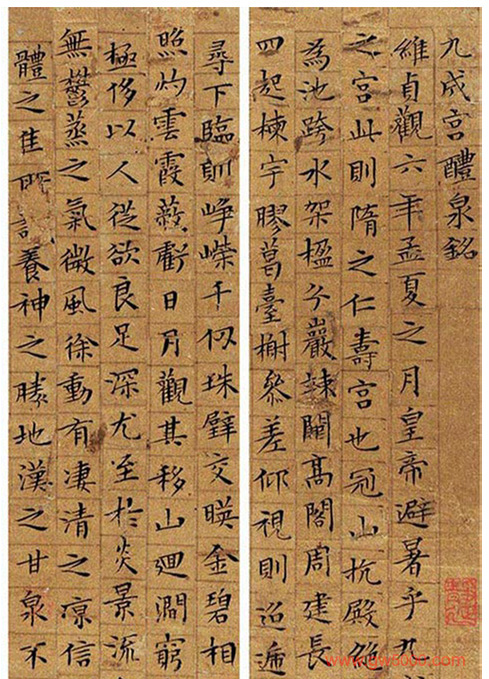 九成宮醴泉銘
維貞觀六年孟夏之月皇帝避暑乎九
之宮此則隋之仁壽宮也冠山抗殿絕
為池跨水架楹分巖竦闕高閣周建長
四起棟宇膠葛臺榭參差仰視則迢遞
尋下臨則崢嶸千仞珠璧交暎金碧相
照灼雲霞蔽虧日月觀其移山迴澗窮
極侈以人從欲良足深尤至於炎景流
無鬱蒸之氣微風徐動有淒清之凉信
體之佳所誠養神之勝地漢之甘泉不